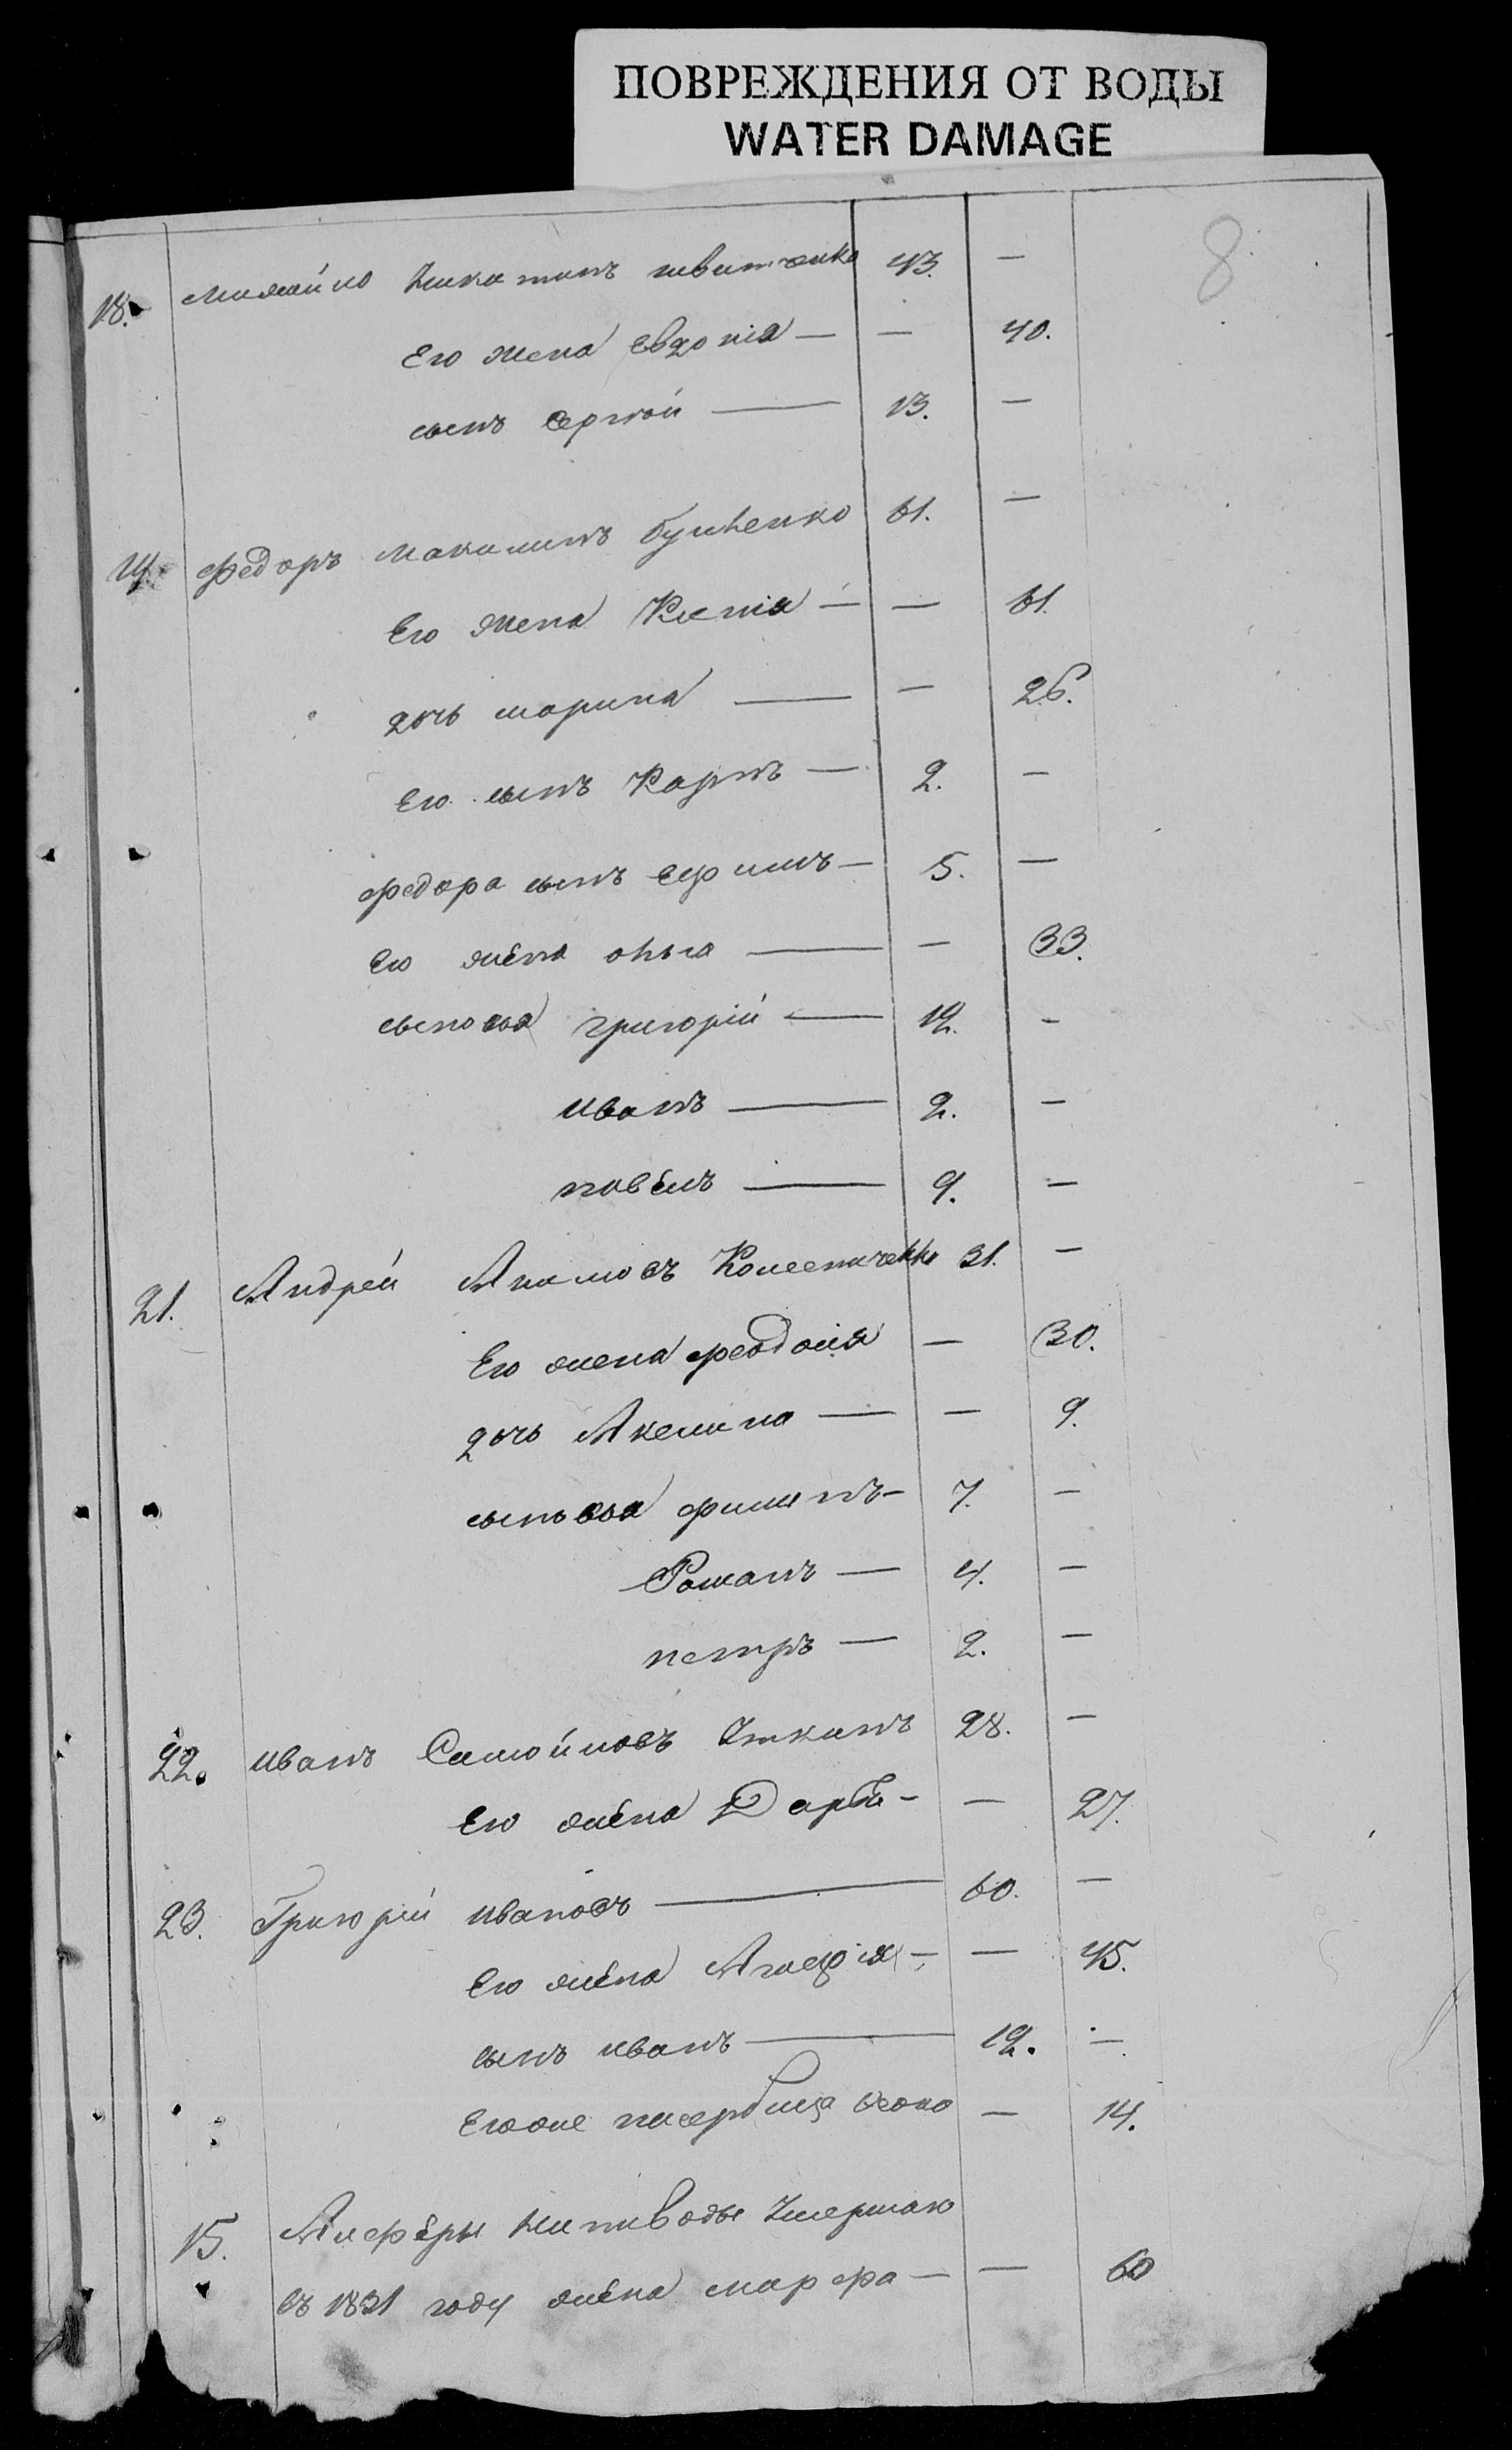 ПОВРЕЖДЕНИЯ ОТ ВОДЫ
WATER DAMAGE
8
18. Михайло Никитинъ 43. —
Его жена Евдокія — — 40.
сынъ Сергѣй — 13. —
Федоръ Максимовъ 61. —
Его жена Ксенія — — 61.
дочь марина — — 26.
Его сынъ Карпъ — 2. —
Федора сынъ Ефимъ — 5. —
Его жена — — 33.
сыновья григорій — 12. —
иванъ — 2. —
павелъ — 9. —
21. Андрей Акимовъ Колесниченко 31. —
Его жена феодосія — 30.
дочь Акелина — — 9.
сыновья филипъ — 7. —
Романъ — 4. —
петръ — 2. —
22. иванъ Самойловъ 28. —
Его жена Дарья — — 27.
23. Григорій ивановъ — 60. —
Его жена Агафія — — 45.
сынъ иванъ — 12. —
Егоже — 14.
15.
въ 1831 году жена марфа — — 60